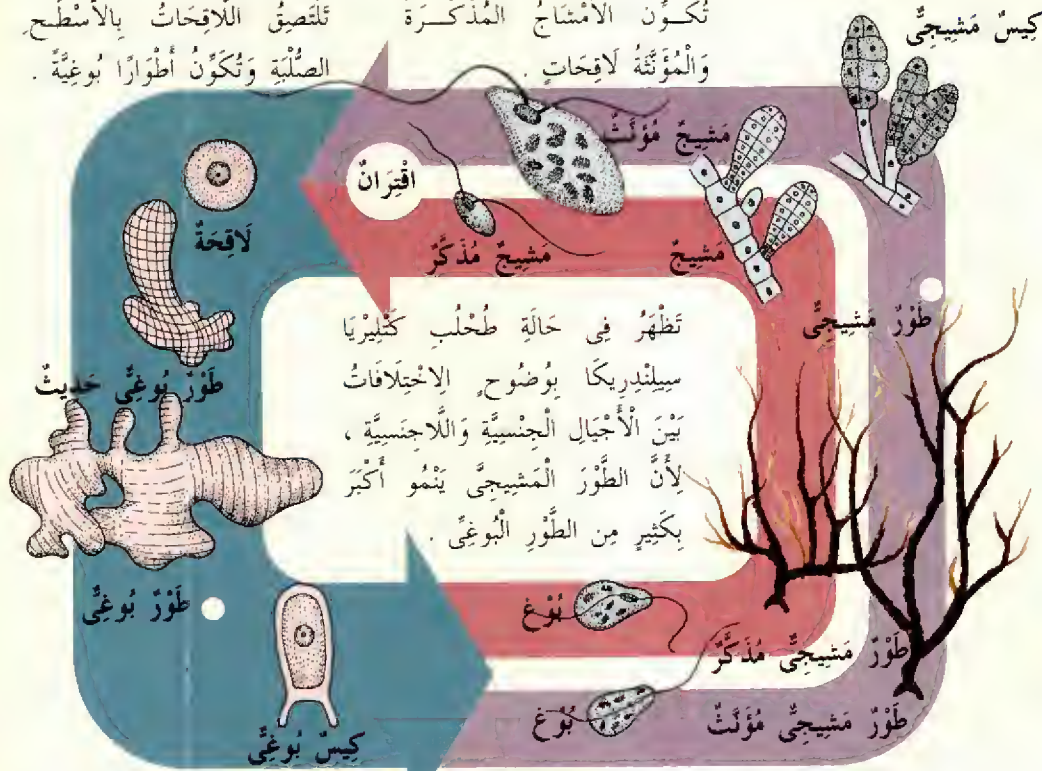 تُكَوِّنُ الْأَمْشَاجُ الْمُذَكَّرَةُ
وَالْمُؤَنَّثَةُ لَاقِحَاتٍ .
تَلْتَصِقُ اللَّاقِحَاتُ بِالْأَسْطُحِ
الصُّلْبَةِ وَتُكَوِّنُ أَطْوَارًا بُوغِيَّةً .
كِيسٌ مَشِيجِىٌّ
مَشِيجٌ مُؤَنَّثٌ
اقْتِرَانٌ
لَاقِحَةٌ
مَشِيجٌ
مَشِيجٌ مُذَكَّرٌ
طَوْرٌ مَشِيجِىٌّ
تَظْهَرُ فِى حَالَةِ طُحْلُبِ كَتْلِيرْيَا
سِيلِنْدِرِيكَا بِوُضُوحٍ الِاخْتِلَافَاتُ
بَيْنَ الْأَجْيَالِ الْجِنْسِيَّةِ وَاللَّاجِنْسِيَّةِ ،
لِأَنَّ الطَّوْرَ الْمَشِيجِىَّ يَنْمُو أَكْبَرَ
بِكَثِيرٍ مِن الطَّوْرِ الْبُوغِىِّ .
طَوْرٌ بُوغِىٌّ حَدِيثٌ
طَوْرٌ بُوغِىٌّ
بُوغ
طَوْرٌ مَشِيجِىٌّ مُذَكَّرٌ
بُوغ
طَوْرٌ مَشِيجِىٌّ مُؤَنَّثٌ
كِيسٌ بُوغِىٌّ